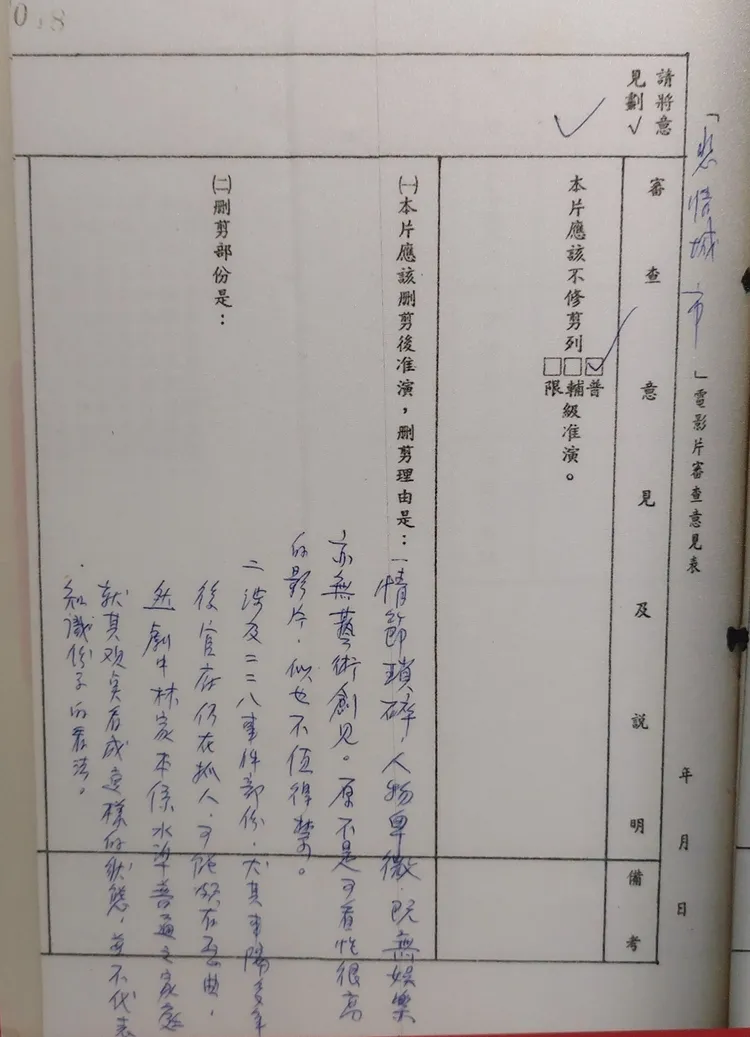 018
「悲情城市」電影片審查意見表 年 月 日
請將意見劃✓
審查意見及說明
備考
✓
本片應該不修剪列☑普□輔□限級准演。
㈠本片應該刪剪後准演,刪剪理由是:
㈡刪剪部份是:
一情節瑣碎,人物卑微,既無娛樂
亦無藝術創見。原不是可看性很高
的影片,似也不值得禁。
二涉及二二八事件部份,尤其事隔多年
後官府仍在抓人,可能頗有歪曲,
然劇中林家本係水準普通之家庭
就其观点看成這樣的狀態,並不代表
知識份子的看法。